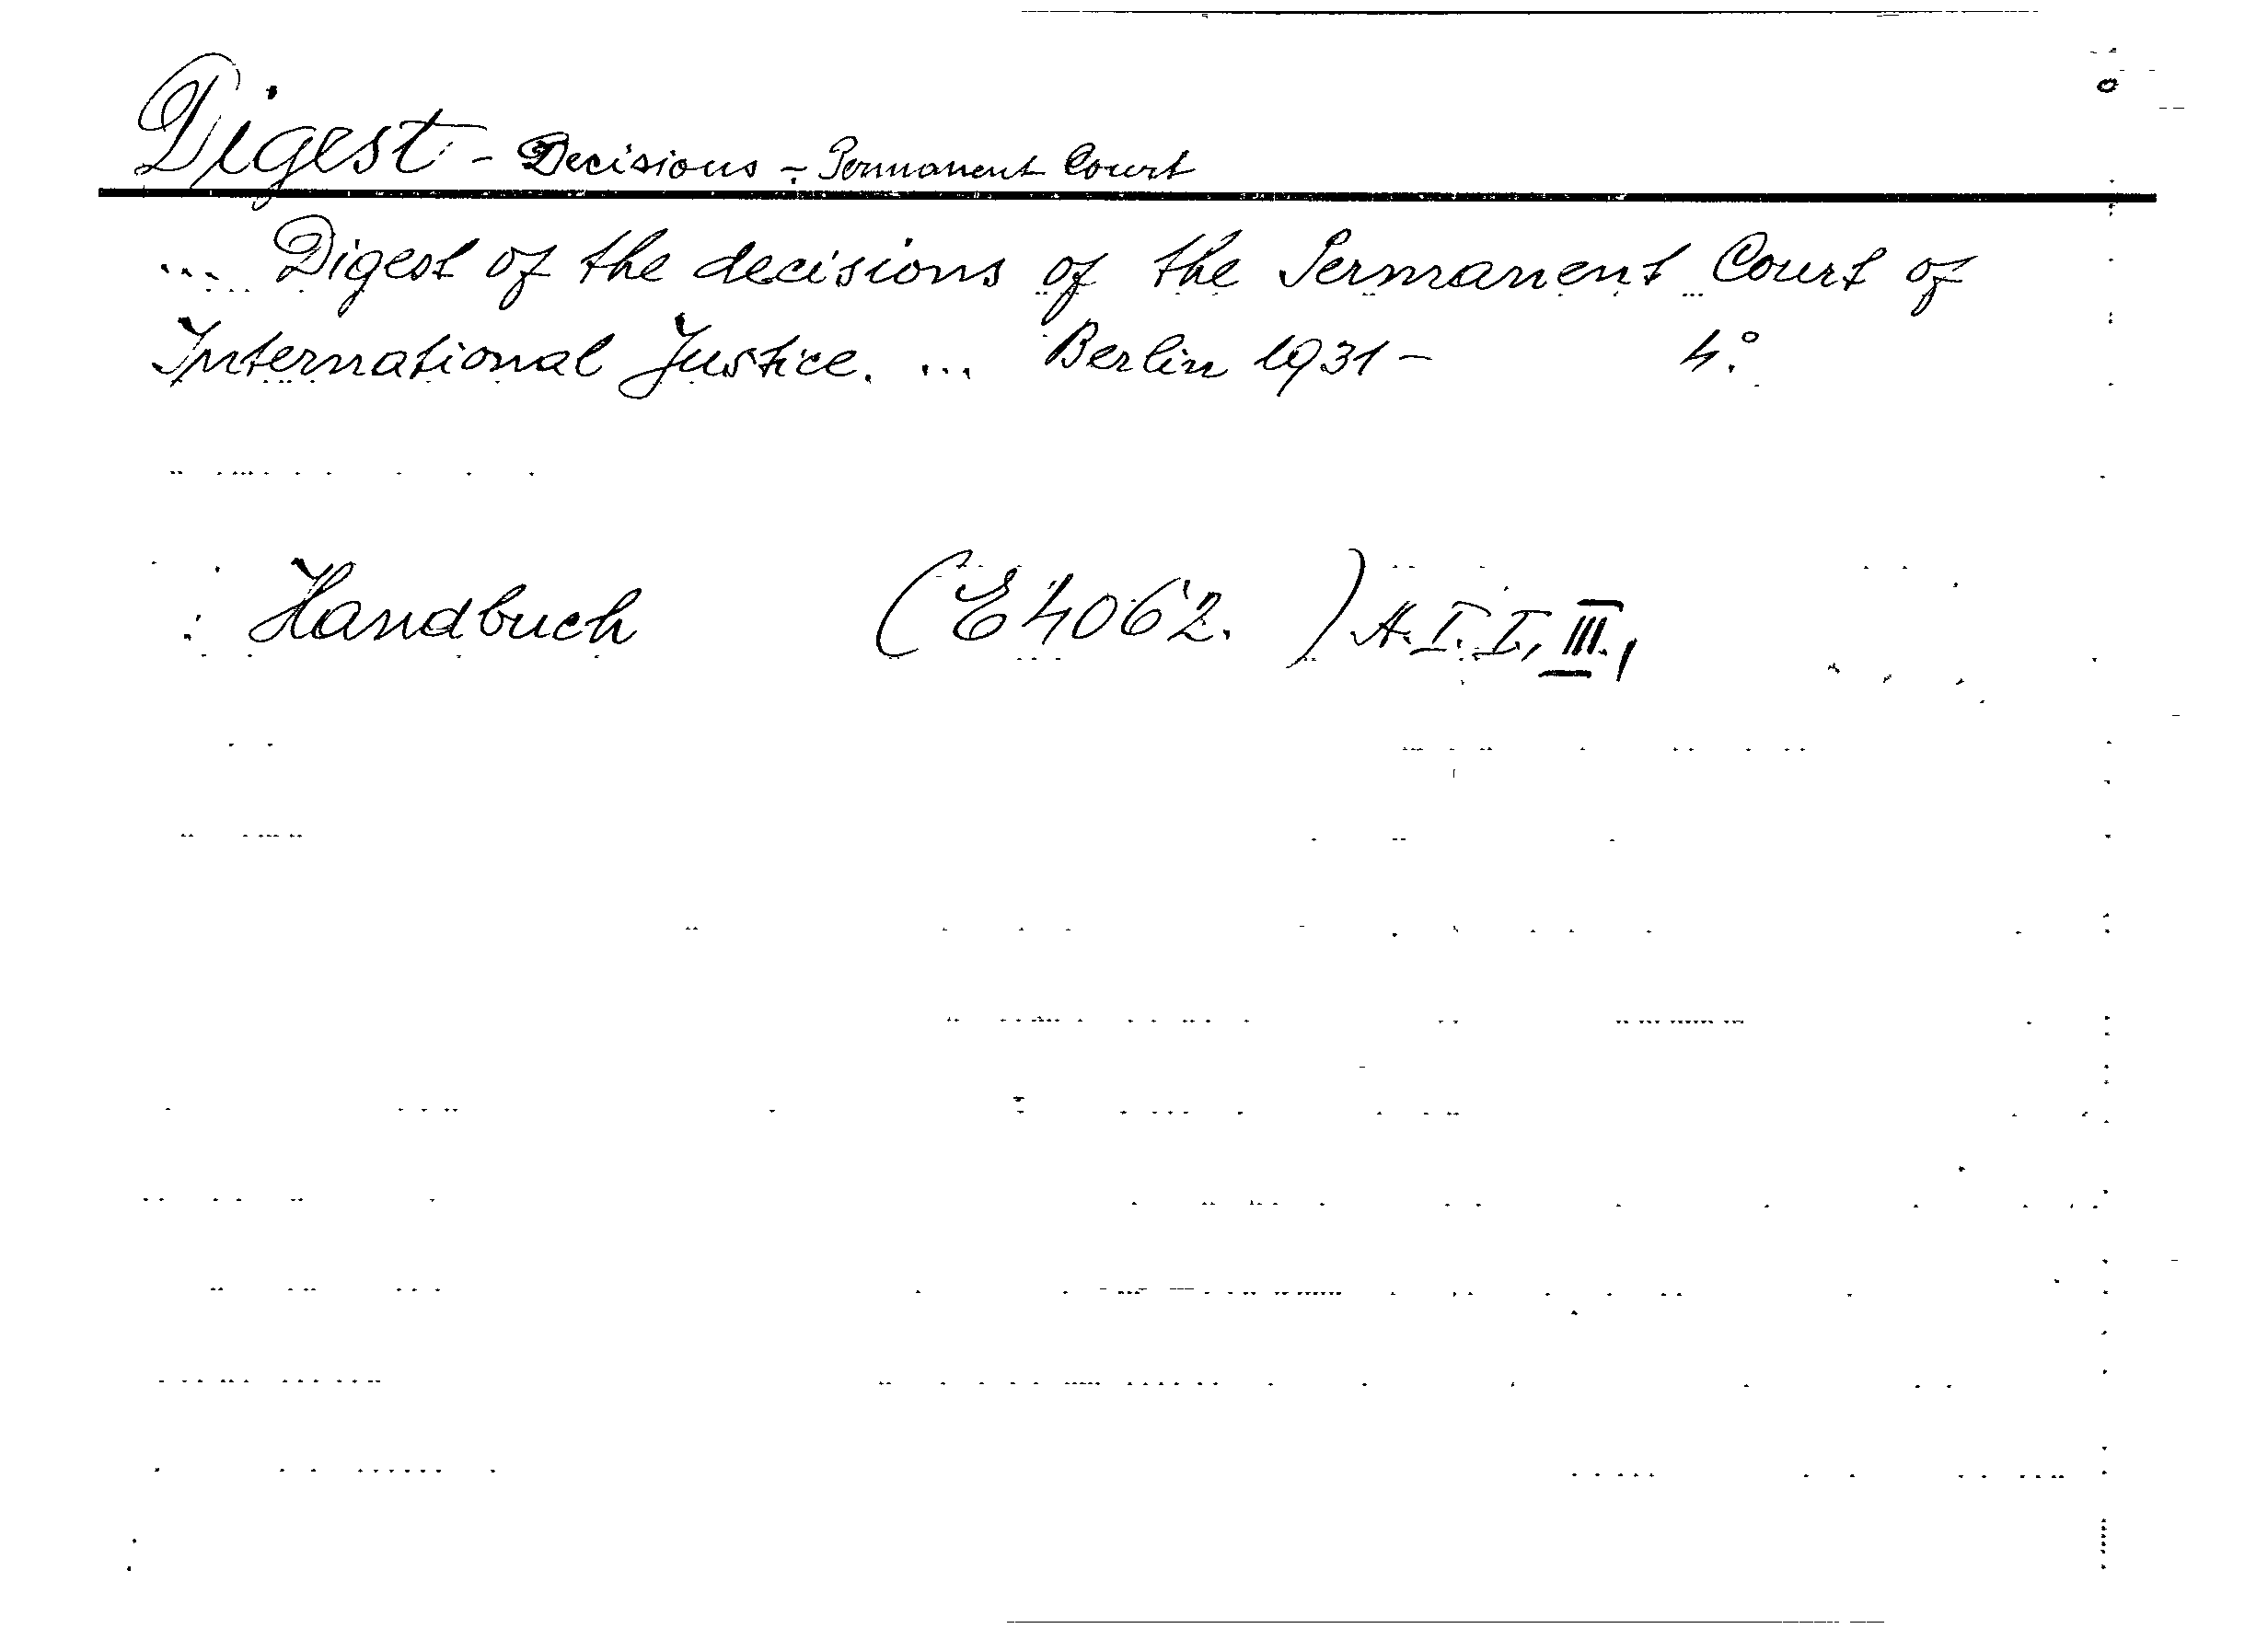 Digest - Decisions - Permanent Court
... Digest of the decisions of the Permanent Court of
International Justice. ... Berlin 1931- 4°
Handbuch (E4062. ) A.I. I, III.,